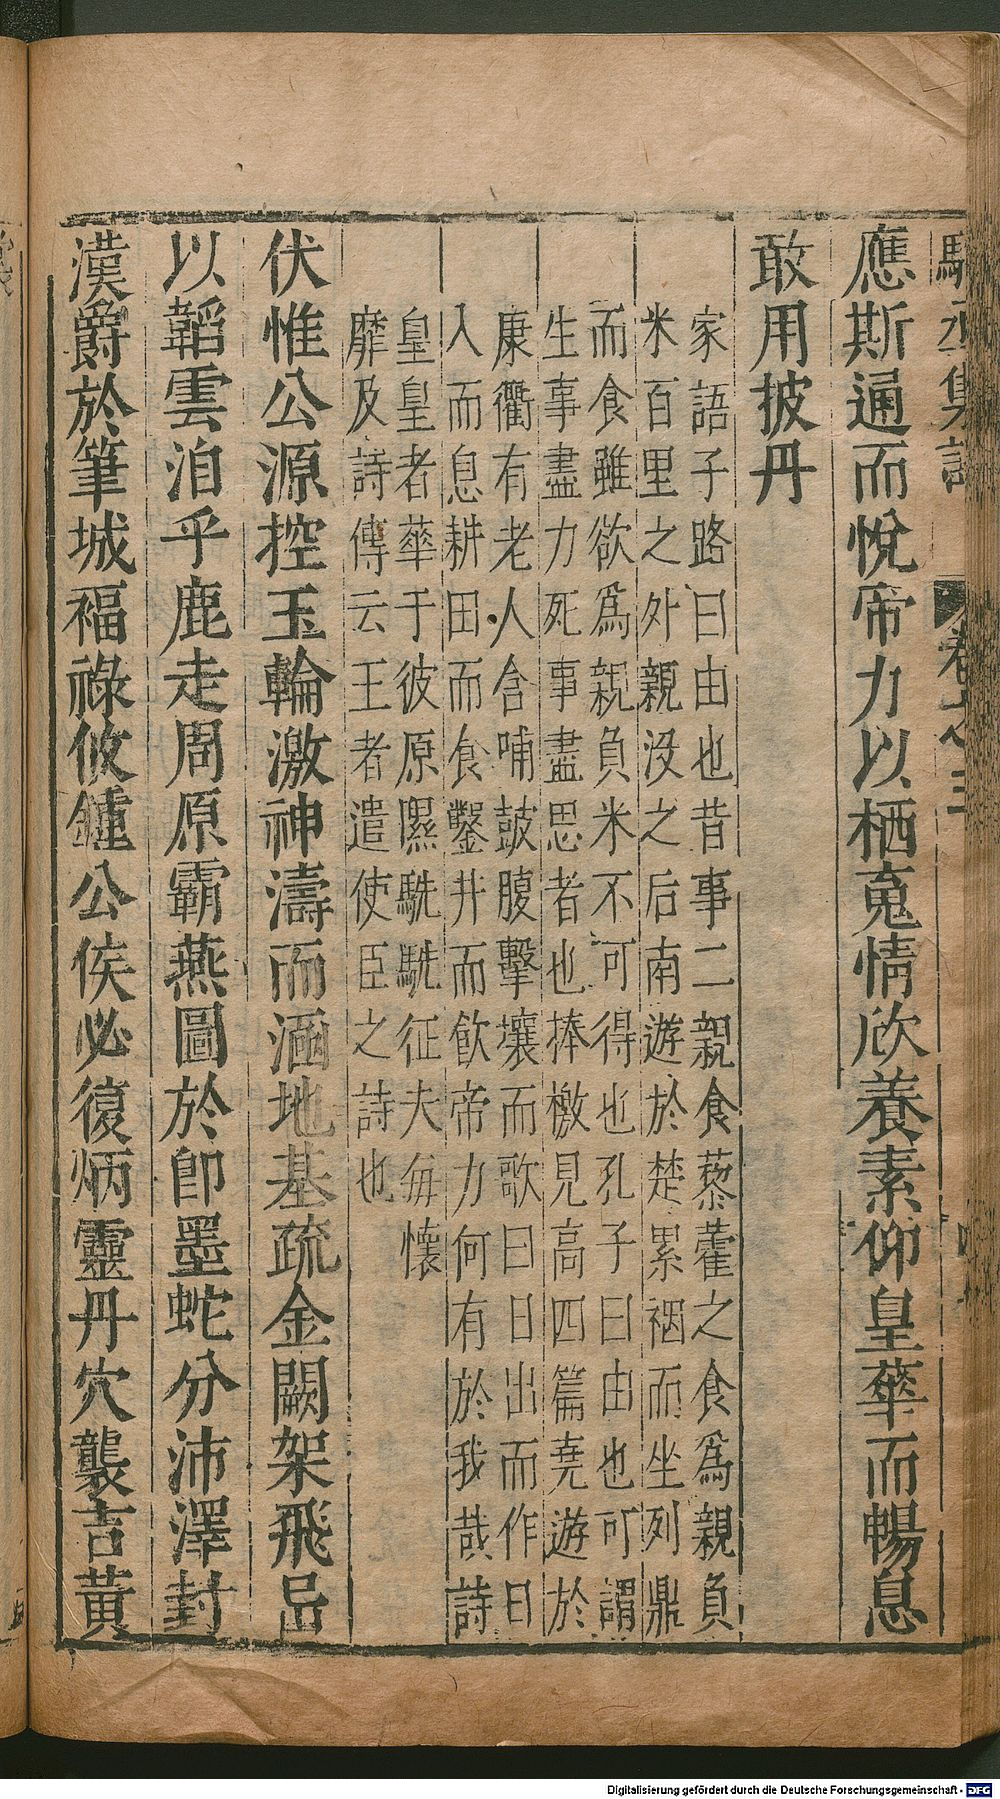 應斯通而悅帝力以栖䕫情欣養素仰皇華而暢息
敢用披丹
家語子路曰由也昔事二親食藜藿之食爲親負
米百里之外親沒之后南遊於楚累裀而坐列鼎
而食雖欲爲親負米不可得也孔子曰由也可謂
生事盡力死事盡思者也捧檄見高四篇堯遊於
康衢有老人含哺鼓腹擊壤而歌曰日出而作日
入而息耕田而食鑿井而飲帝力何有於我哉詩
皇皇者華于彼原隰駪駪征夫每懷
靡及詩傳云王者遣使臣之詩也
伏惟公源控玉輪激神濤而涵地基疏金闕架飛岊
以韜雲洎乎鹿走周原霸燕圖於卽墨蛇分沛澤封
漢爵於筆城福祿攸鍾公侯必復炳靈丹穴襲吉黃
Digitalisierung gefördert durch die Deutsche Forschungsgemeinschaft - DFG